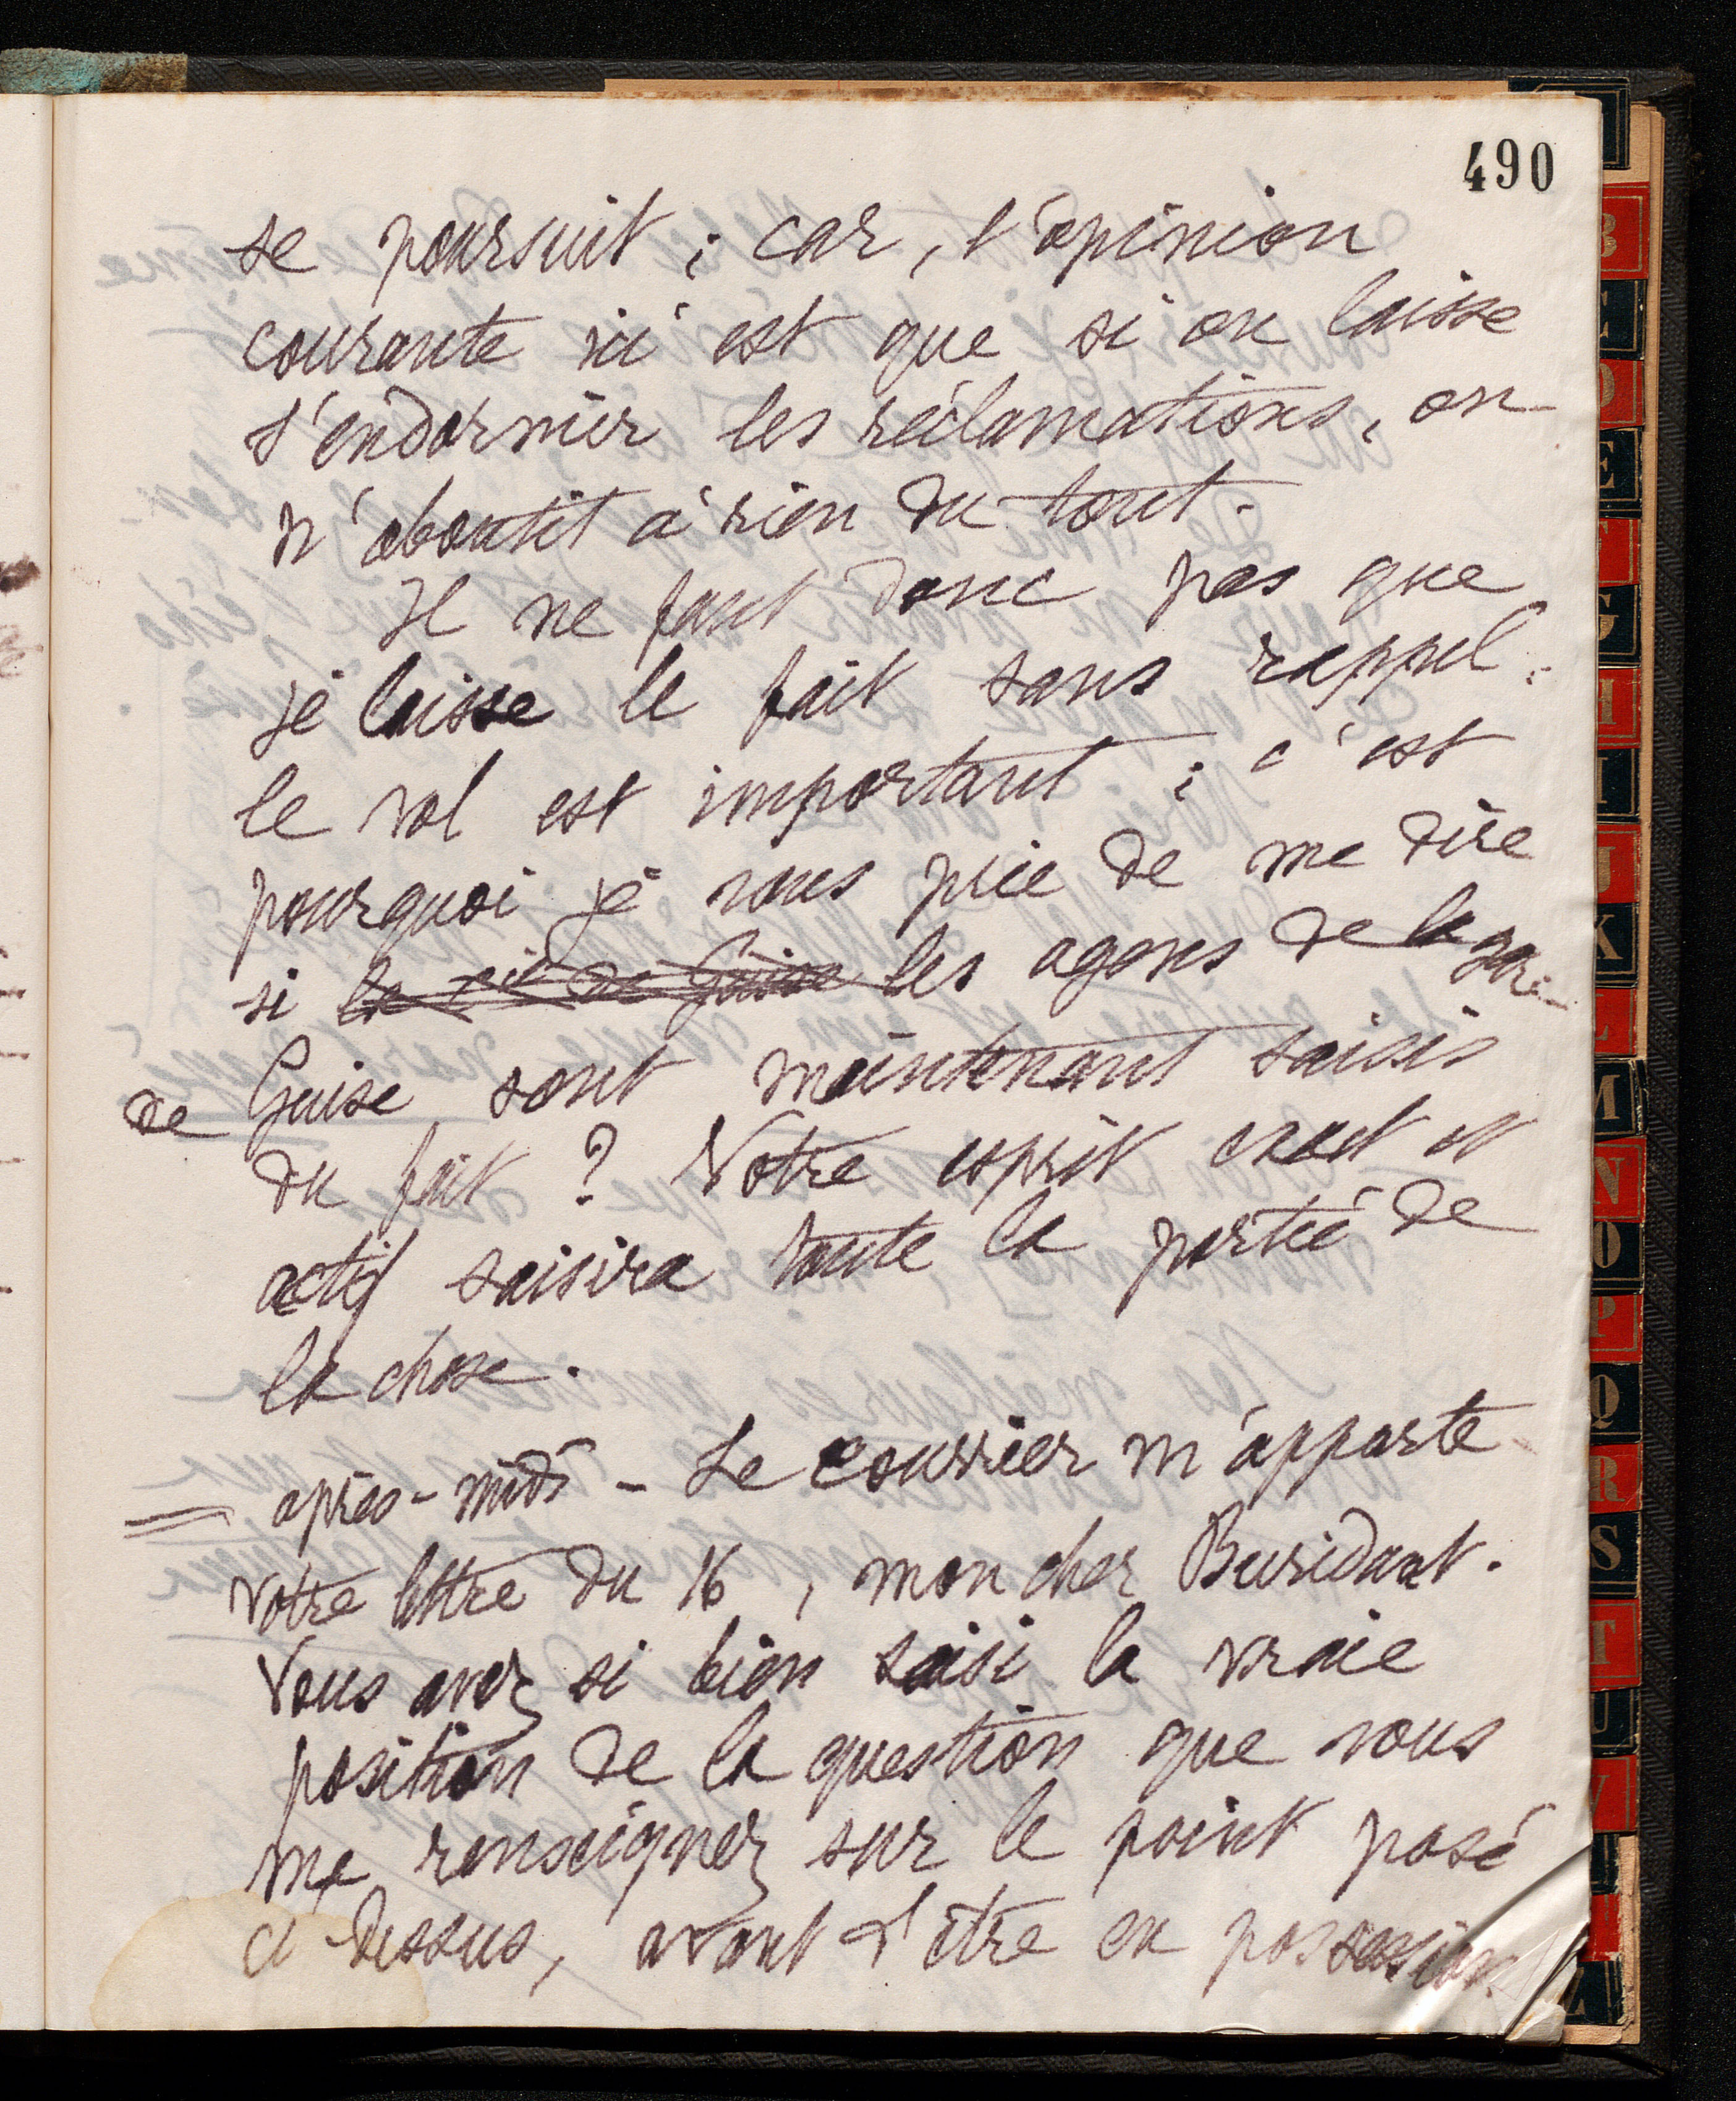 490
se poursuit ; car, l'opinion
courante ici est que si on laisse
s'endormir les réclamations, on
n'aboutit à rien du tout.
Il ne faut donc pas que
je laisse le fait sans rappel :
le vol est important ; c'est
pourquoi je vous prie de me dire
si la Cie de Guise les agens de la gare
de Guise sont maintenant saisis
du fait ? Votre esprit exact et
actif saisira toute la portée de
la chose.
= après-midi - Le courrier m'apporte
votre lettre du 16, mon cher Buridant.
Vous avez si bien saisi la vraie
position de la question que vous
me renseignez sur le point posé
ci-dessus, avant d'être en possession